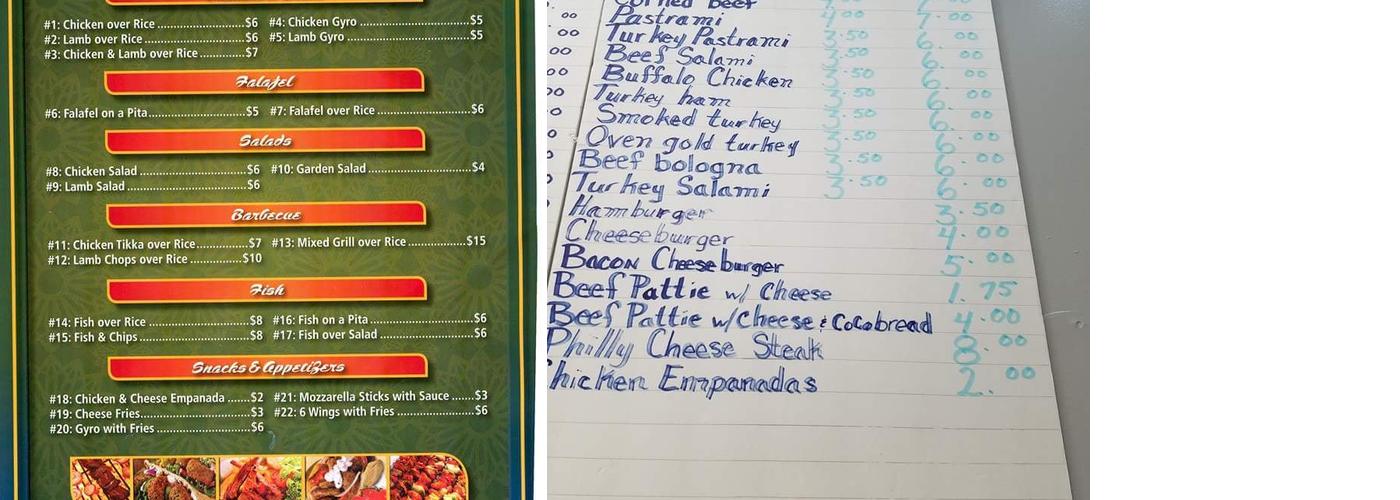 #1: Chicken over Rice ........ $6 #4: Chicken Gyro ........ $5
#2: Lamb over Rice ........ $6 #5: Lamb Gyro ........ $5
#3: Chicken & Lamb over Rice ........ $7
Falafel
#6: Falafel on a Pita ........ $5 #7: Falafel over Rice ........ $6
Salads
#8: Chicken Salad ........ $6 #10: Garden Salad ........ $4
#9: Lamb Salad ........ $6
Barbecue
#11: Chicken Tikka over Rice ........ $7 #13: Mixed Grill over Rice ........ $15
#12: Lamb Chops over Rice ........ $10
Fish
#14: Fish over Rice ........ $8 #16: Fish on a Pita ........ $6
#15: Fish & Chips ........ $8 #17: Fish over Salad ........ $6
Snacks & Appetizers
#18: Chicken & Cheese Empanada ...... $2 #21: Mozzarella Sticks with Sauce ....... $3
#19: Cheese Fries ........ $3 #22: 6 Wings with Fries ........ $6
#20: Gyro with Fries ........ $6
Corned Beef
Pastrami 4.00 7.00
Turkey Pastrami 3.50 6.00
Beef Salami 3.50 6.00
Buffalo Chicken 3.50 6.00
Turkey ham 3.50 6.00
Smoked turkey 3.50 6.00
Oven gold turkey 3.50 6.00
Beef bologna 3.50 6.00
Turkey Salami 3.50 6.00
Hamburger 3.50
Cheeseburger 4.00
Bacon Cheeseburger 5.00
Beef Pattie w/ Cheese 1.75
Beef Pattie w/Cheese & Cocobread 4.00
Philly Cheese Steak 8.00
hicken Empanadas 2.00